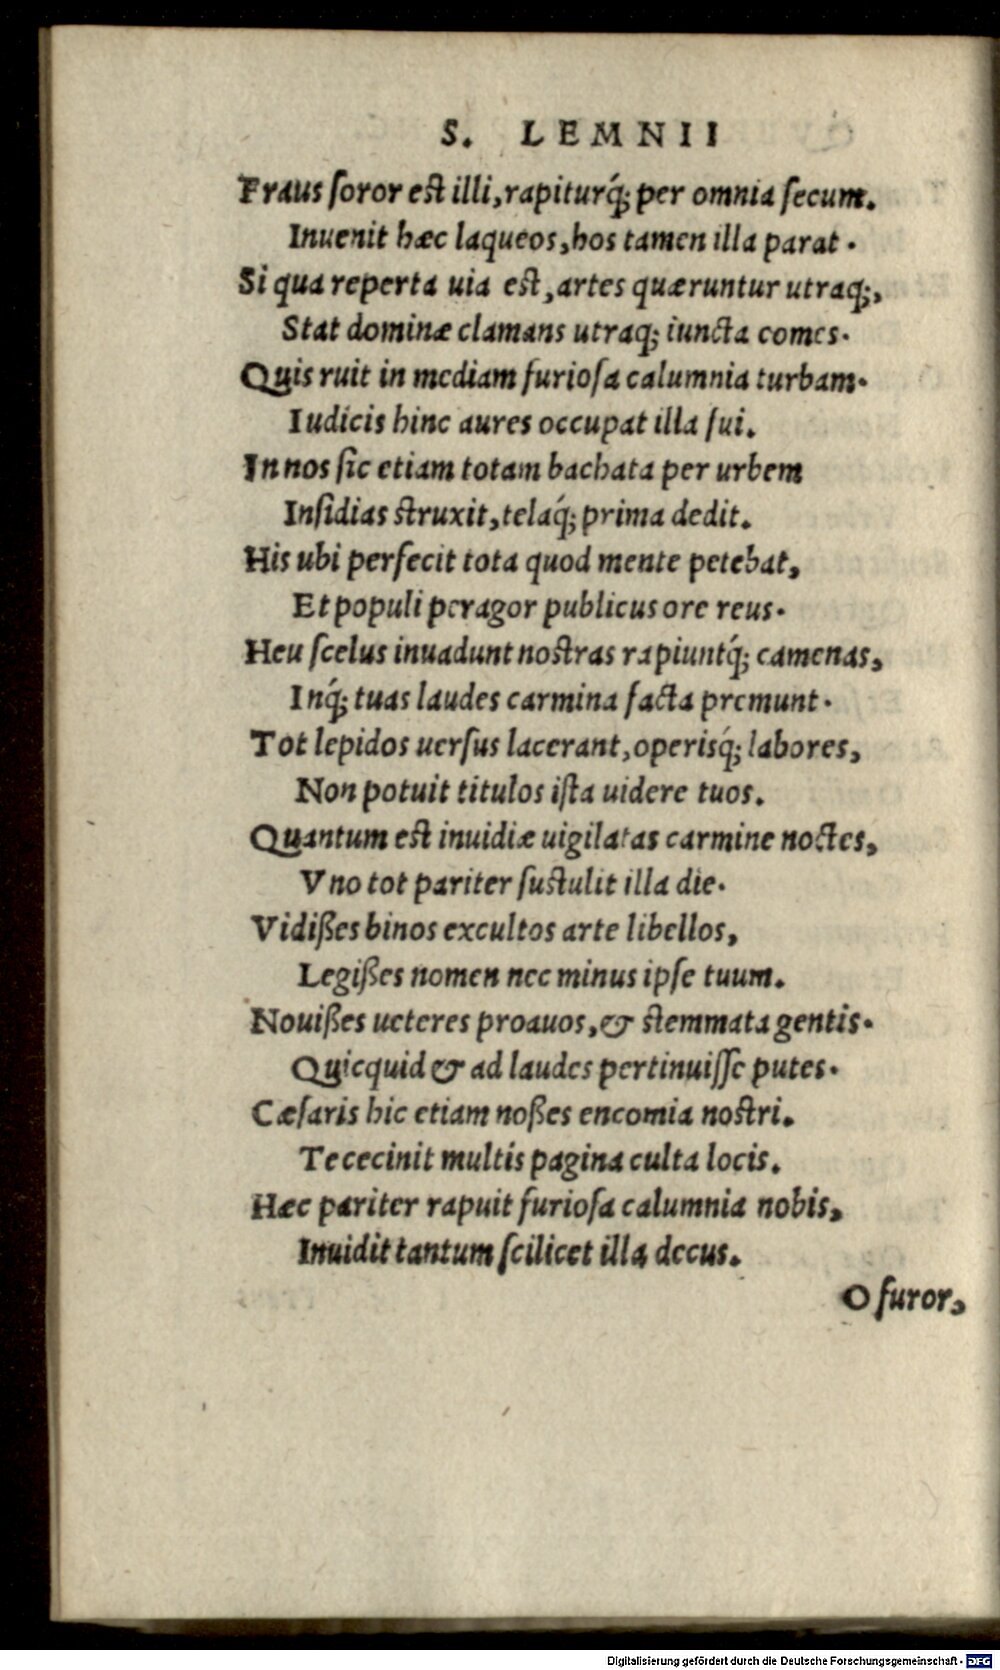 S. LEMNII
Fraus ſoror est illi, rapiturq́; per omnia ſecum.
Inuenit hæc laqueos, hos tamen illa parat.
Si qua reperta uia est, artes quæruntur utraq;,
Stat dominæ clamans utraq; iuncta comes.
Quis ruit in mediam furioſa calumnia turbam.
Iudicis hinc aures occupat illa ſui.
In nos ſic etiam totam bachata per urbem
Inſidias struxit, telaq́; prima dedit.
His ubi perfecit tota quod mente petebat,
Et populi peragor publicus ore reus.
Heu ſcelus inuadunt nostras rapiuntq́; camenas,
Inq́; tuas laudes carmina facta premunt.
Tot lepidos uerſus lacerant, operisq́; labores,
Non potuit titulos iſta uidere tuos.
Quantum est inuidiæ uigilatas carmine noctes,
Vno tot pariter ſustulit illa die.
Vidißes binos excultos arte libellos,
Legißes nomen nec minus ipſe tuum.
Nouißes ueteres proauos, & stemmata gentis.
Quicquid & ad laudes pertinuiſſe putes.
Cæſaris hic etiam noßes encomia nostri.
Te cecinit multis pagina culta locis.
Hæc pariter rapuit furioſa calumnia nobis,
Inuidit tantum ſcilicet illa decus.
O furor,
Digitalisierung gefördert durch die Deutsche Forschungsgemeinschaft - DFG